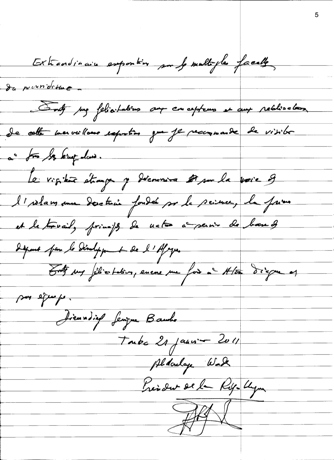 5
Extraordinaire exposition sur les multiples facettes
du mouridisme.
Toutes mes félicitations aux concepteurs et aux réalisateurs
de cette merveilleuse exposition que je recommande de visiter
à tous les
Le visiteur étranger y découvrira sur la voie de
l'islam une doctrine fondée sur la science, la prière
et le travail, principes de notre
départ pour le développement de l'Afrique
Toutes mes félicitations, encore une fois à Atou Diagne et
son équipe.
Dieureudief Serigne Bamba
Touba 21 janvier 2011
Abdoulaye Wade
Président de la République